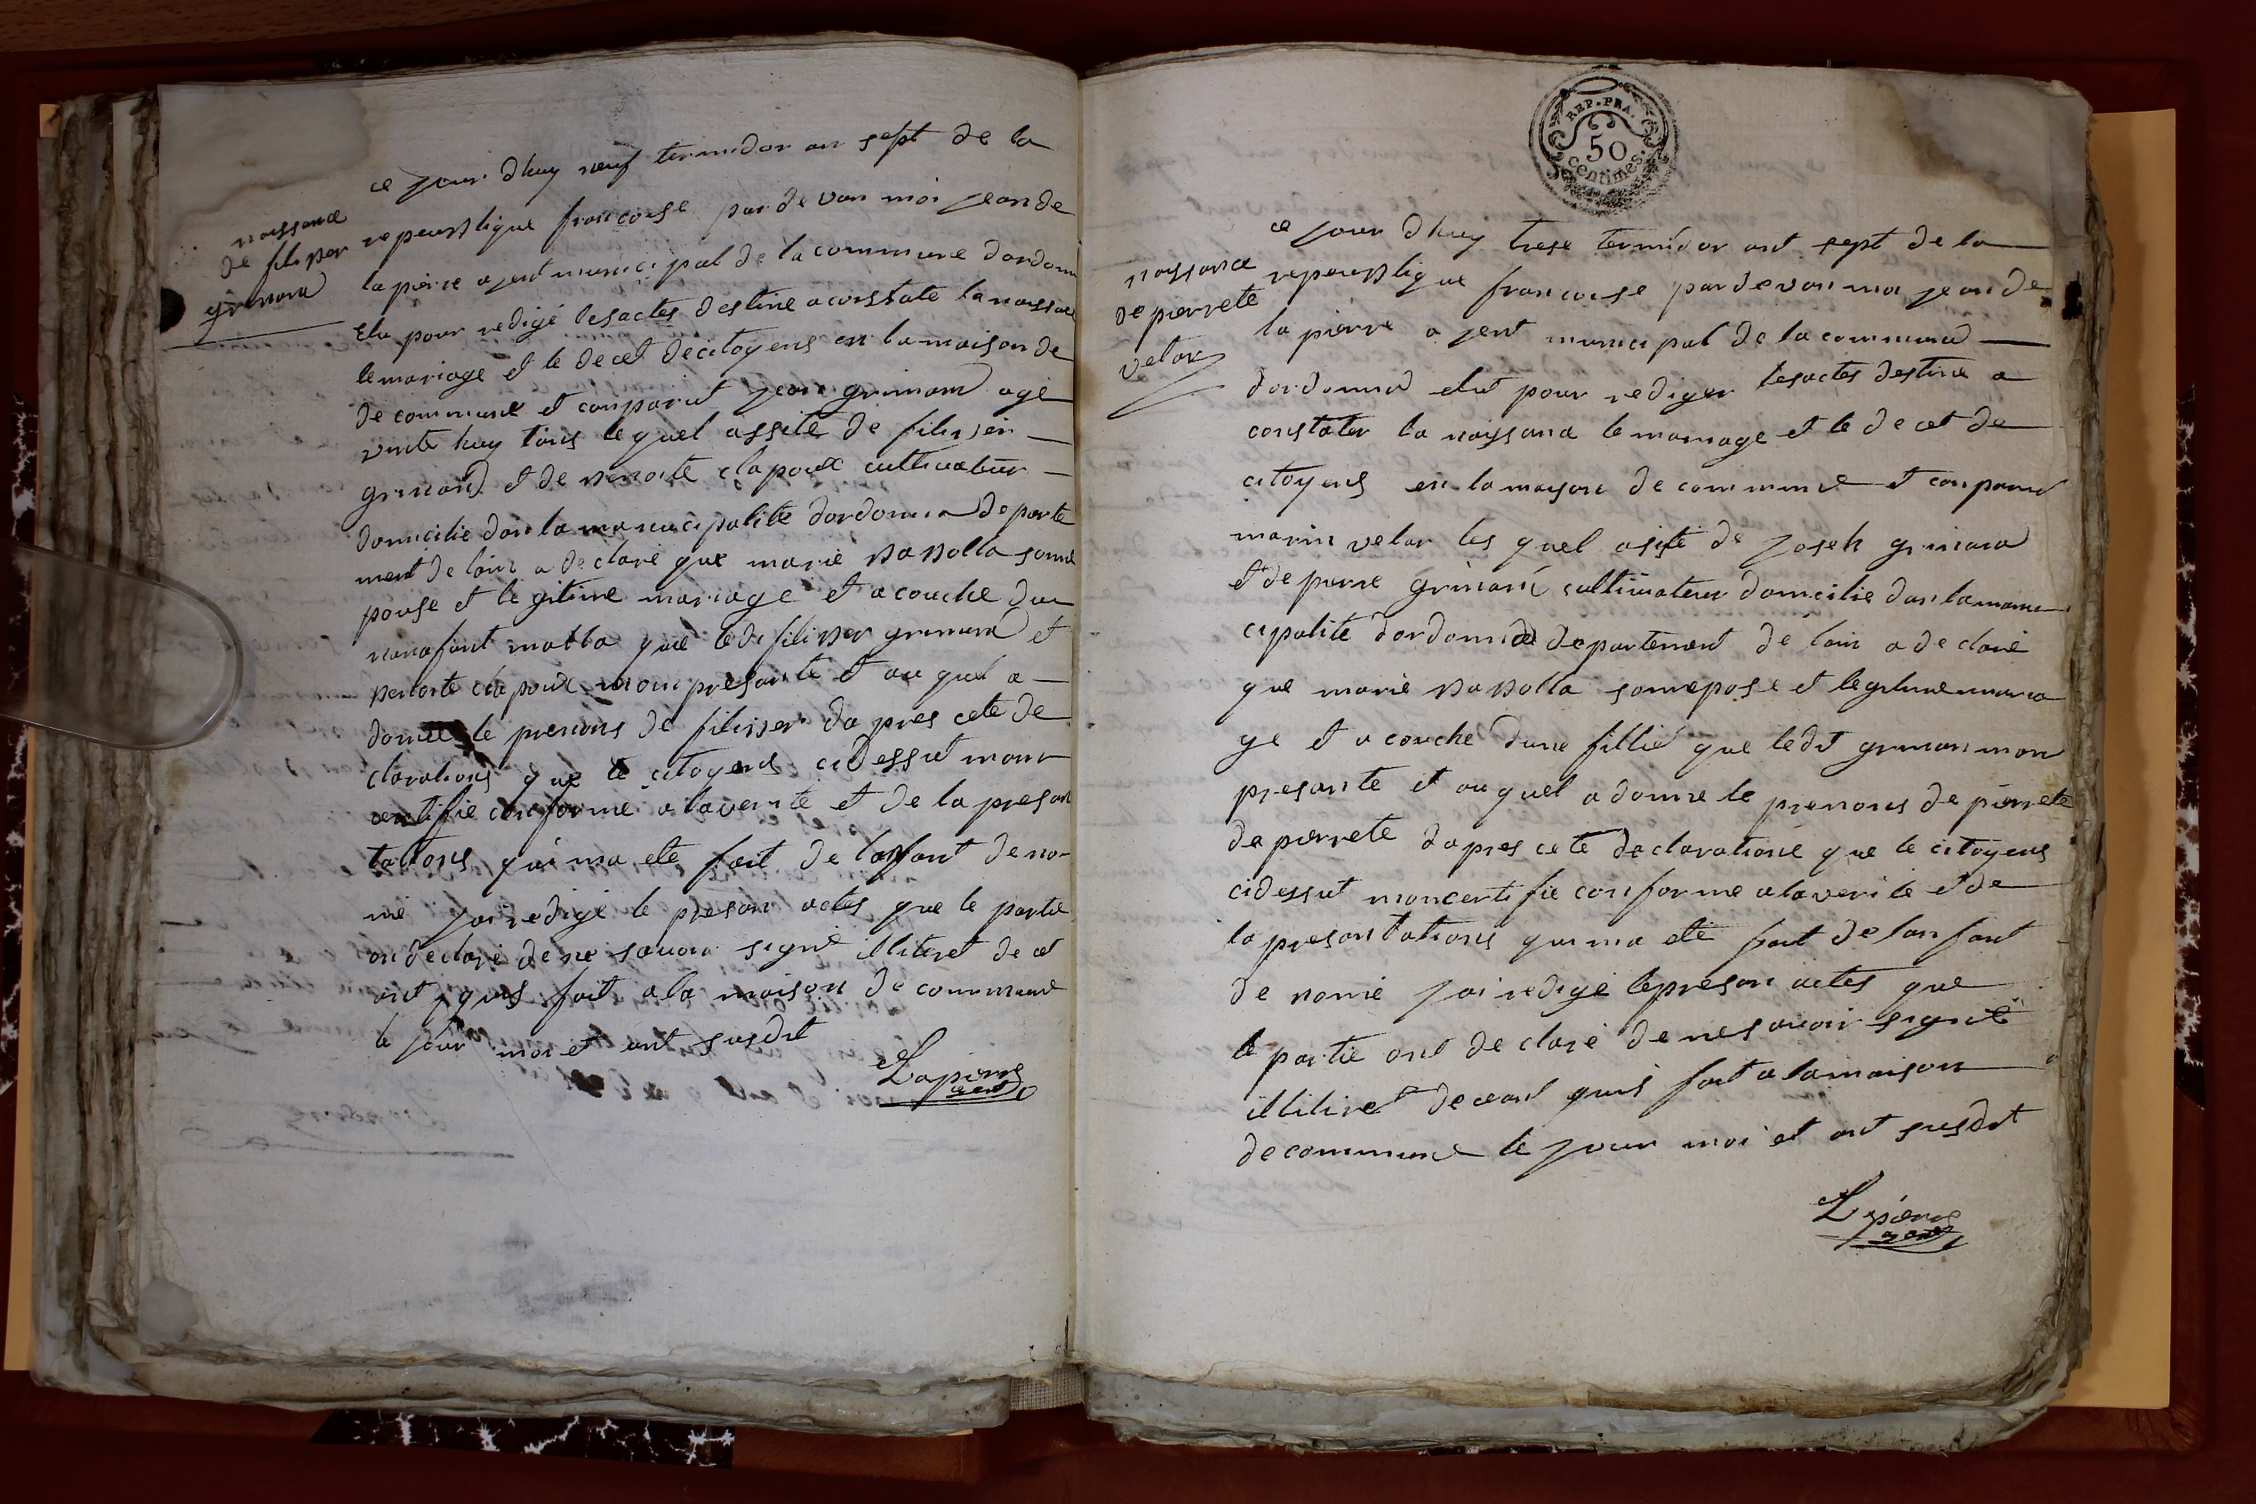 ce jour dhuy neuf termidor an sept de la
naissance
de filiper
grinand
repeupplique francoise par de van moi jean de
la pierre ajent municipal de la commune dordonn
Elu pour redigé les actes destine a constate la naissance
le mariage et le decet de citoyens en la maison de
de commune et conparut jean grinand age
vinte huy tans le quel assité de filiper
grinand et de benoite clapoux cultivateur
domicilie dan la municipalite dordonna departe
ment de lain a declaré que marie sonne
pouse et legitime mariage et a couche dun
nanafant malla que ledi filiper grinand et
benoite clapoux mon presante et au quel a
donne le prenons de filiper da pres cete de
clarations que le citoyens cidessut mont
certifie conforme a la verité et de la presan
tations qui ma ete fait de lanfant de no
mé jai redigé le presan actes que le partie
on declaré de ne savoir signé illitiret de ce
ant quis fait a la maison de commune
le jour moi et ant susdit
Lapierre
agent
REP. FRA.
50
centimes.
ce jour dhuy trese termidor ant sept de la
naissance
de pierrete
velar
repeupplique francoise par devan moi jean de
la pierre ajent municipal de la commune
dordonna elut pour rediger les actes destine a
constater la naissance le mariage et le decet de
citoyens en la maison de commune et conparut
marin velar les quel asisté de joseh grinand
et de pierre grinand cultivateur domicilie dan la muni
cipalité dordonna departement de lain a declaré
que marie sonnepose et legitime maria
ge et a couché dune fillie que ledit grinan mon
presante et au quel a donne le prenons de pierrete
de pierrete dapres cete declarations que le citoyens
cidessut moncertifie conforme a la verité et de
la presantations qui ma eté fait de lanfant
de nomé jai redigé le presan actes que
le partie ont declaré de ne savoir signé
illitiret de ceant quis fait a la maison
de commune le jour moi et ant susdit
Lapierre
agent